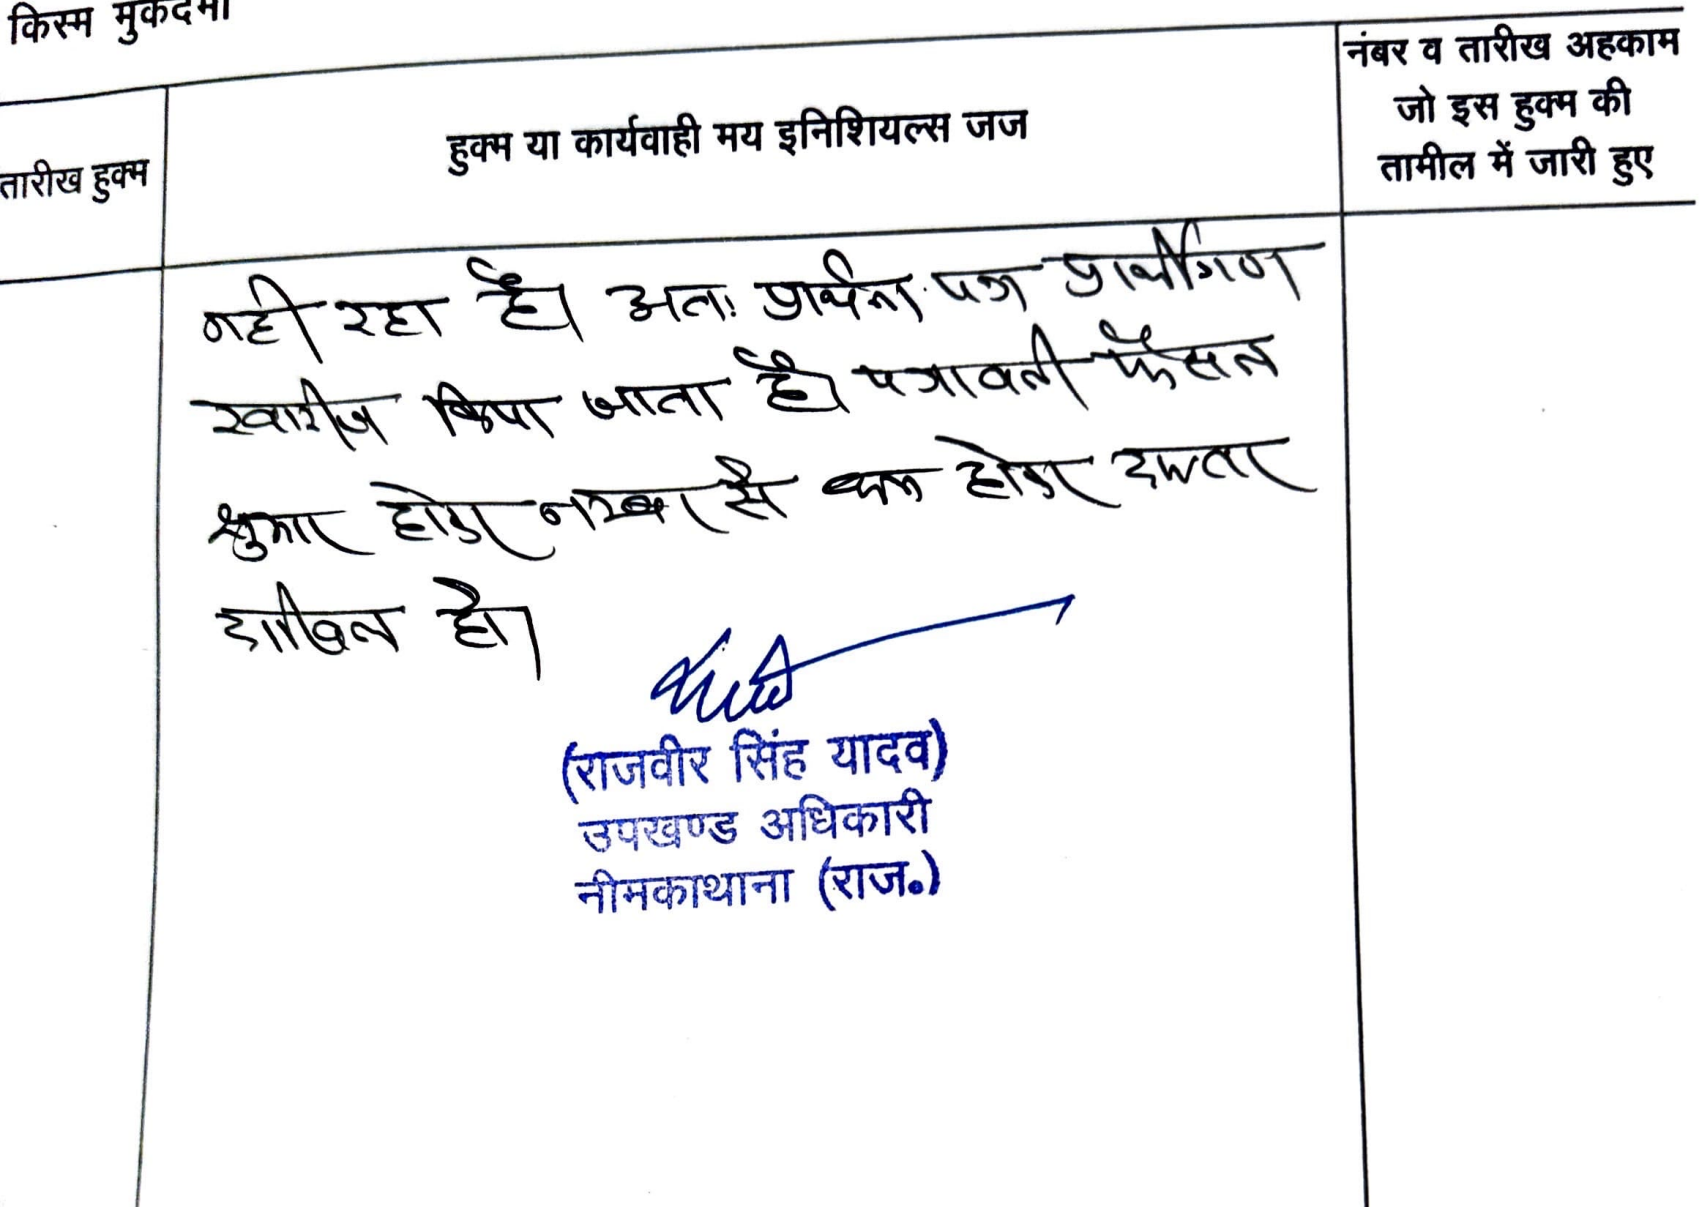 किस्म मुकदमा
तारीख हुक्म
हुक्म या कार्यवाही मय इनिशियल्स जज
नंबर व तारीख अहकाम
जो इस हुक्म की
तामील में जारी हुए
नही रहा है। अतः प्रार्थना पत्र प्रार्थीगण
खारीज किया जाता है। पत्रावली फैसल
शुमार होकर नम्बर से कम होकर दफ्तर
दाखिल हो।
(राजवीर सिंह यादव)
उपखण्ड अधिकारी
नीमकाथाना (राज०)